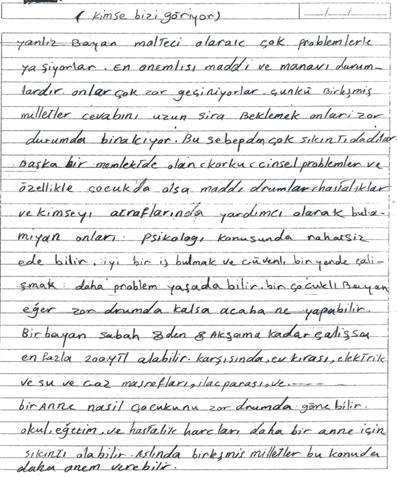 ( kimse bizi görüyor)
yanliz Bayan malteci olarak çok problemlerle
yaşiyorlar. En onemlisi maddi ve manavi durum-
lardır onlar çok zor geçiniyorlar. çunkü Birleşmiş
milletler cevabini uzun sira Beklemek onlari zor
durumda birakıyor. Bu sebepdn çok sıkıntıdadılar
Başka bir memlektde olan korku, cinsel problemler ve
özellikle çocukda olsa maddi drumlar, hastalıklar
ve kimseyi atraflarında yardımcı olarak bula-
miyan onları: psikologı konusunda nahatsiz
ede bilir. iyi bir iş bulmak ve cüvenli bir yerde çali-
şmak: daha problem yaşada bilir. bir çocukli Bayan
eğer zor drumda kalsa acaba ne yapabilir.
Bir bayan sabah 8den 8 Akşama kadar çalişsa
en fazla 200ytl alabilir. karşısında, ev kırası, elektrik
ve su ve Gaz masrefları, ilaç parası, ve......
bir Anne nasil çocukunu zor drumda göre bilir.
okul, eğetim, ve hastalik harcları daha bir anne için
sıkıntı olabilir. Aslında birleşmiş milletler bu konuda
daha onem verebilir.